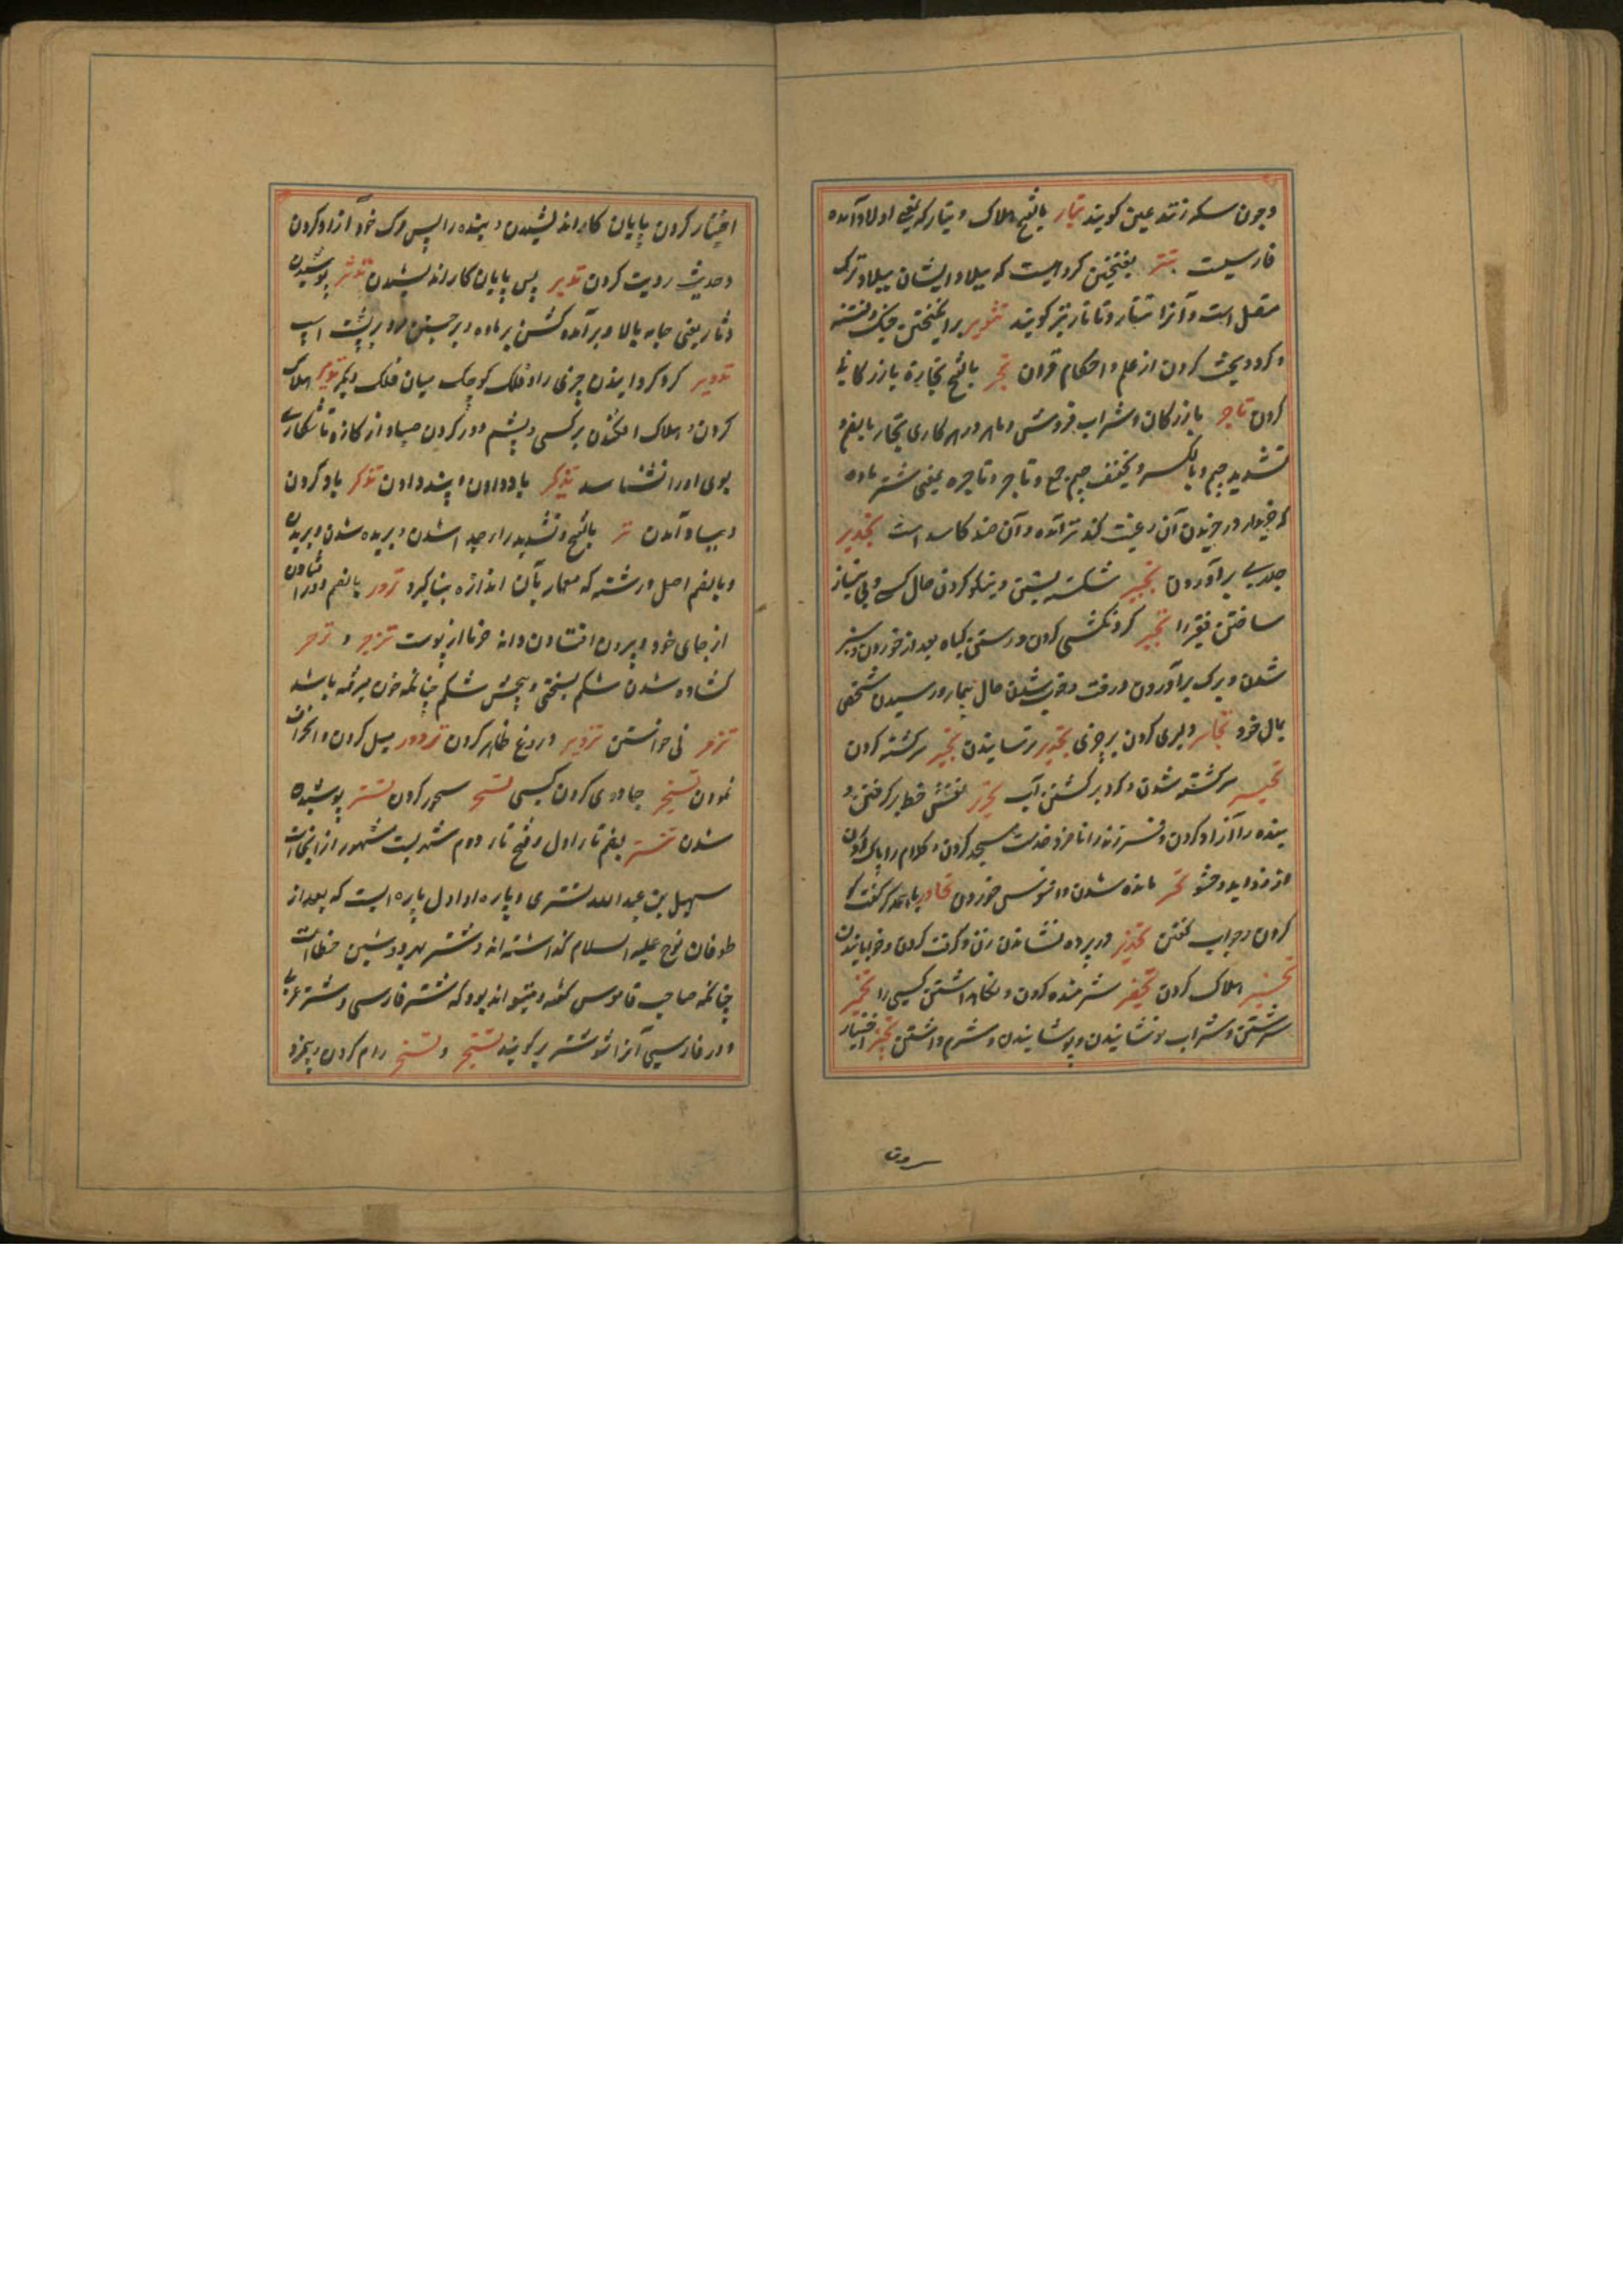 و چون سکه زنند عین کویند تبار بالفتح هلاک و تبار که یعنی اولاد آمده
فارسیست تتر بفتحتین کروهیست که بیلاد ایشان بیلاد ترک
متصل است و آنرا تتار و تاتار نیز کویند تثویر برانکیختن جنک و فتنه
و کرد و بحث کردن از علم و احکام قران تجر بالفتح تجارة بازرکانی
کردن تاجر بازرکان و شراب فروش و ماهر در هر کاری تجار بالضم و
تشدید جیم و بالکسر و تخفیف جیم جمع و تاجر و تاجره یعنی شتر ماده
که خریدار در خریدن آن رغبت کند تر آمده و آن ضد کاسد است تجدیر
جدری برآوردن تجبیر شکسته بستن و نیکو کردن حال کسی و بی نیاز
ساختن فقیر را تجبر کردنکشی کردن و رستن کیاه بعد از خوردن و سبز
شدن و برک برآوردن درخت و خوب شدن حال بیمار و رسیدن شخصی
بمال خود تجاسر دلیری کردن بر چیزی تحذیر ترسانیدن تحیر سرکشته کردن
سرکشته شدن و کرد برکشتن آب تحریر نقش خط برکرفتن و
بنده را آزاد کردن و فرزند را نامزد خدمت مسجد کردن و کلام را پاک کردن
از زواید و حشو تحسر مانده شدن و افسوس خوردن تحاور باهمدکر گفت کو
کردن و جواب گفتن تخدیر در پرده نشاندن زن و کرخت کردن و خوابانیدن
تخسیر هلاک کردن تخفیر شرمنده کردن و نکاهداشتن کسی را تخمیر
سرشتن و شراب نوشانیدن و پوشانیدن و شرم داشتن تخیر اختیار
اختیار کردن بپایان کار اندیشیدن و بنده را پس مرک خود آزاد کردن
و حدیث رویت کردن تدبر پس پایان کار اندیشیدن تدثر پوشیدن
دثار یعنی جامه بالا و برآمدن کشن بر ماده و برجستن مرد بر پشت اسپ
تدویر کرد کردانیدن چیزی را و فلک کوچک میان فلک دیکر تدمیر هلاک
کردن و هلاک افکندن بر کسی و پشم دور کردن صیاد از کازه تا شکاری
بوی او را نشناسد تذکیر یاد دادن و پند دادن تذکر یاد کردن
و بیاد آمدن تر بالفتح و تشدید را جدا شدن و بریده شدن و بریدن
و بالضم اصل و رشته که معمار بآن اندازه بنا کیرد ترور بالضم دور افتادن
از جای خود و بیرون افتادن دانه خرما از پوست تزحیر و تزحر
کشاده شدن شکم بسختی و پیچش شکم چنانکه خون میرفته باشد
نی خواستن تزویر دروغ ظاهر کردن تزاور میل کردن و انحراف
نمودن تسحیر جادوی کردن کسی تسحر سحور کردن تستر پوشیده
شدن تستر بضم تا اول و فتح تا دوم شهریست مشهور از انجاست
سهل بن عبدالله تستری و باره او اول باره ایست که بعد از
طوفان نوح علیه السلام کذاشته اند و شتر بهر دو شین خطا است
چنانکه صاحب قاموس کفته و میتواند بود که ششتر فارسی و تستر عربی
و در فارسی آنرا شوشتر برکویند تسخیر و تسخر رام کردن و بمزد